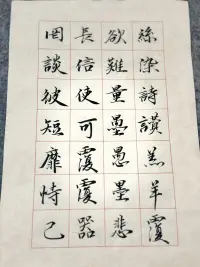 罔談彼短靡恃己
長信使可覆覆器
欲難量墨墨墨悲
絲染詩讚羔羊覆